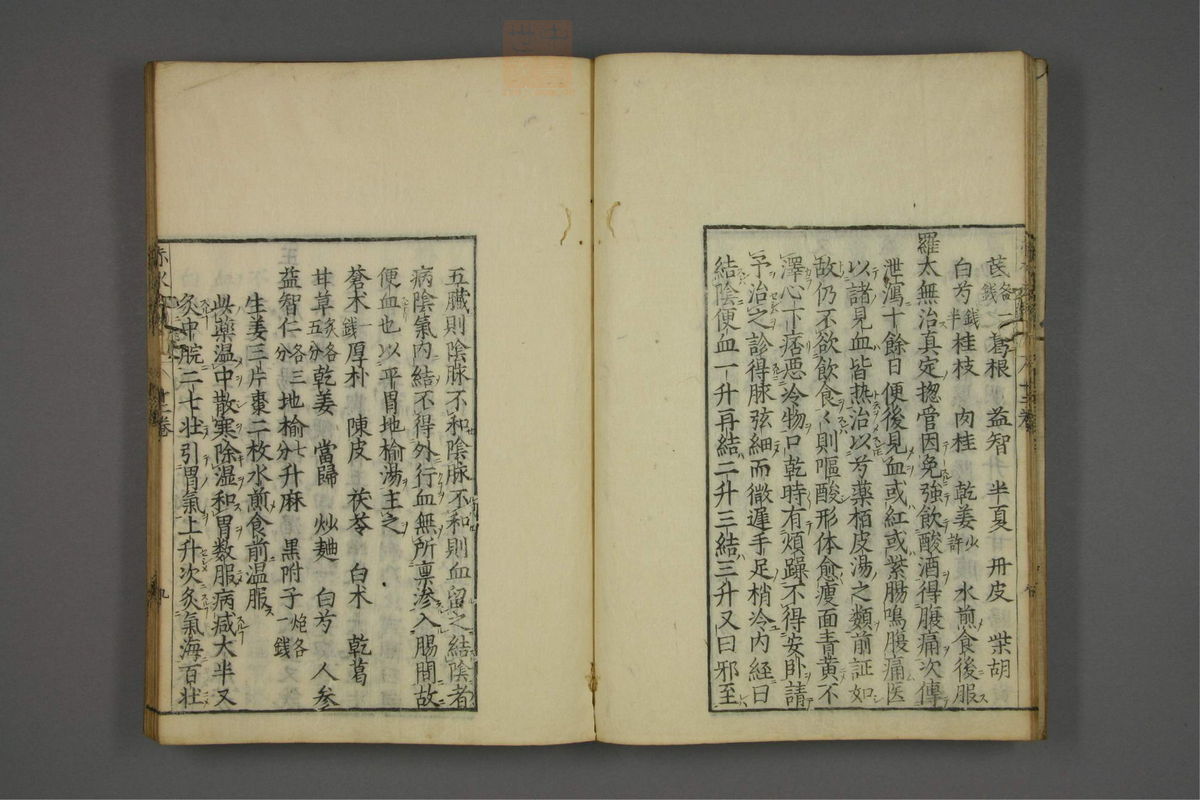 芪各一錢 葛根 益智 半夏 甘 丹皮 柴胡
白芍錢半 桂枝 肉桂 乾姜少許 水煎食後服
羅太無治真定揔管因免強飲酸酒得腹痛次傳
泄瀉十餘日便後見血或紅或紫腸鳴腹痛医
以諸見血皆热治以芍藥栢皮湯之類前証如
故仍不欲飲食〱則嘔酸形体愈瘦面青黄不
澤心下痞悪冷物口乾時有煩躁不得安卧請
予治之診得脉弦細而微遅手足梢冷内経曰
結陰便血一升再結二升三結三升又曰邪至
五臓則陰脉不和陰脉不和則血留之結陰者
病陰氣内結不得外行血無所禀滲入腸間故
便血也以平胃地榆湯主之
蒼术一錢 厚朴 陳皮 茯苓 白术 乾葛
甘草炙各五分 乾姜 當歸 炒麯 白芍 人参
益智仁各三分 地榆七分 升麻 黒附子炮各一錢
生姜三片棗二枚水煎食前温服
此藥温中散寒除湿和胃数服病减大半又
灸中脘二七壮引胃氣上升次灸氣海百壮
赤水
卷
九